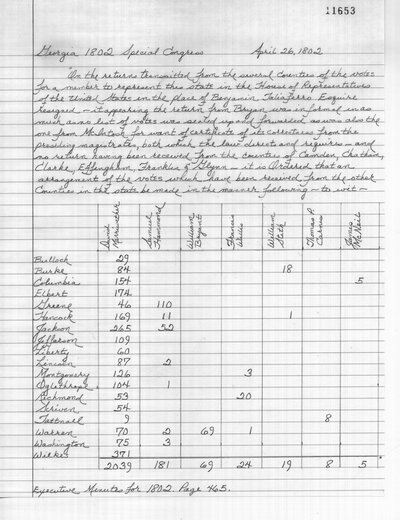 11653
Georgia 1802 Special Congress April 26, 1802
"On the returns transmitted from the several Counties of the votes
for a member to represent this state in the House of Representatives
of the United States in the place of Benjamin Taliaferro Esquire
resigned - it appearing the return from Bryan was informal in as
much as no list of votes was sealed up and forwarded, as was also the
one from McIntosh for want of certificate of its correctness from the
presiding magistrates, both which the law direct and requires - and
no return having been received from the counties of Camden, Chatham,
Clarke, Effingham, Franklin & Glynn - it is Ordered that an
arrangement of the votes which have been received from the other
Counties in the state be made in the manner following - to wit -
David Meriwether Samuel Hammond William Bryant Francis Willis William Stith Thomas P. Carnes James McNeil
Bullock 29
Burke 84 18
Columbia 154 5
Elbert 174
Greene 46 110
Hancock 169 11 1
Jackson 265 52
Jefferson 109
Liberty 60
Lincoln 87 2
Montgomery 126 3
Oglethrope 104 1
Richmond 53 20
Scriven 54
Tattnall 9 8
Warren 70 2 69 1
Washington 75 3
Wilkes 371
2039 181 69 24 19 8 5
Executive Minutes for 1802. Page 465.